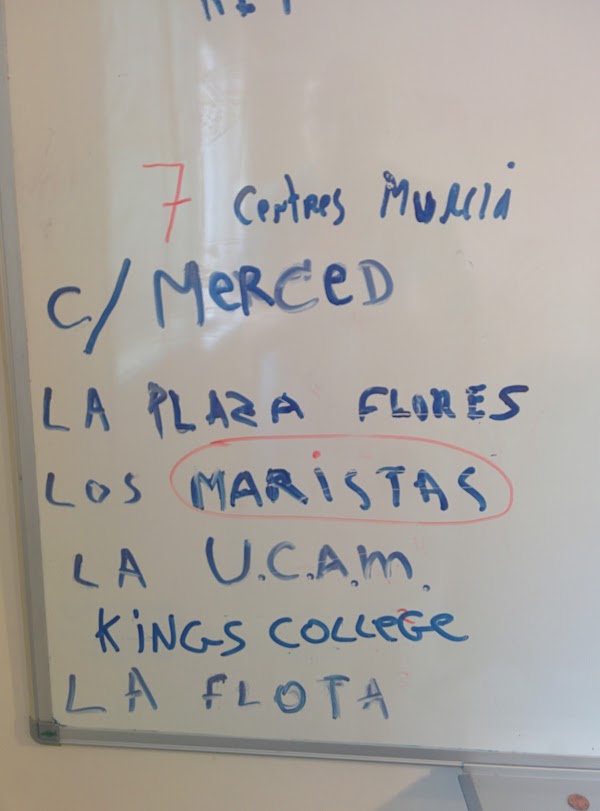 7 Centres Murcia
C/ MERCED
LA PLAZA FLORES
LOS MARISTAS
LA U.C.A.M.
KINGS COLLEGE
LA FLOTA